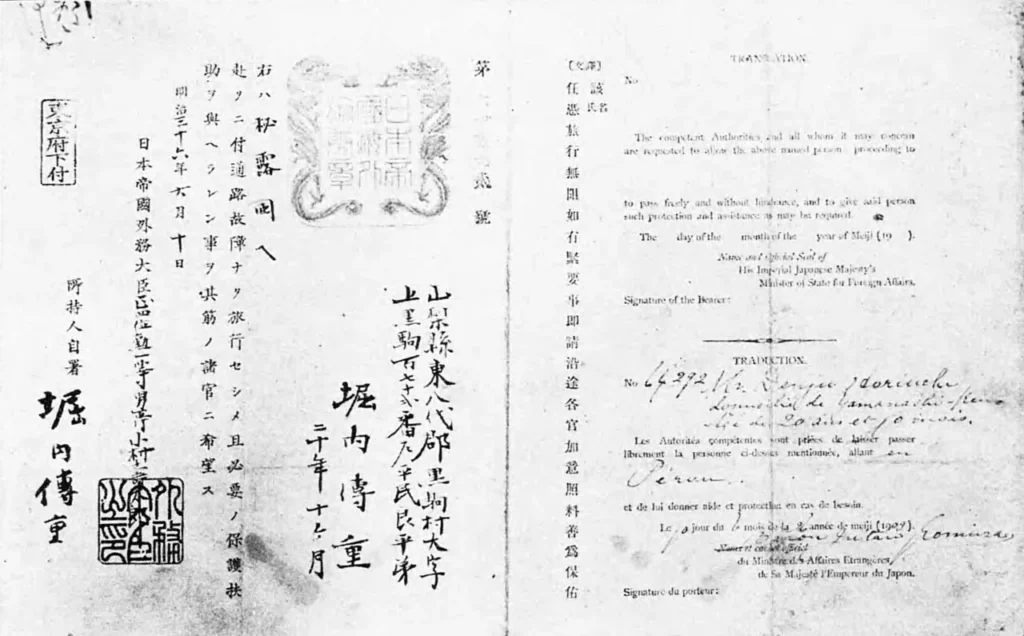 第 號
山梨縣東八代郡黒駒村大字
上黒駒百七十弐番戸平民 弟
堀内傳重
二十年十 月
右ハ秘露國へ
赴クニ付通路故障ナク旅行セシメ且必要ノ保護扶
助ヲ與ヘラレン事ヲ其筋ノ諸官ニ希望ス
明治三十六年六月十日
日本帝國外務大臣正四位勳一等男爵小村壽太郎
外務大臣之印
所持人自署
堀内傳重
東京府下付
〔譯文〕
該氏名
任憑旅行無阻如有緊要事即請沿途各官加意照料善爲保佑
TRANSLATION.
No
The competent Authorities and all whom it may concern
are requested to allow the above named person proceeding to
to pass freely and without hindrance, and to give said person
such protection and assistance as may be required.
The day of the month of the year of Meiji (19 ).
Name and Official Seal of
His Imperial Japanese Majesty's
Minister of State for Foreign Affairs.
Signature of the Bearer:
TRADUCTION.
No 64292 Mr Denju Horiuchi
domicilié de Yamanashi-Ken
âgé de 20 ans et 10 mois.
Les Autorités compétentes sont priées de laisser passer
librement la personne ci-dessus mentionnée, allant en
Pérou.
et de lui donner aide et protection en cas de besoin.
Le 10 jour du 6 mois de la année de meiji (190 ).
Baron Jutaro Komura
Nom et cachet officiel
du Ministre des Affaires Etrangères,
de Sa Majesté l'Empereur du Japon.
Signature du porteur: